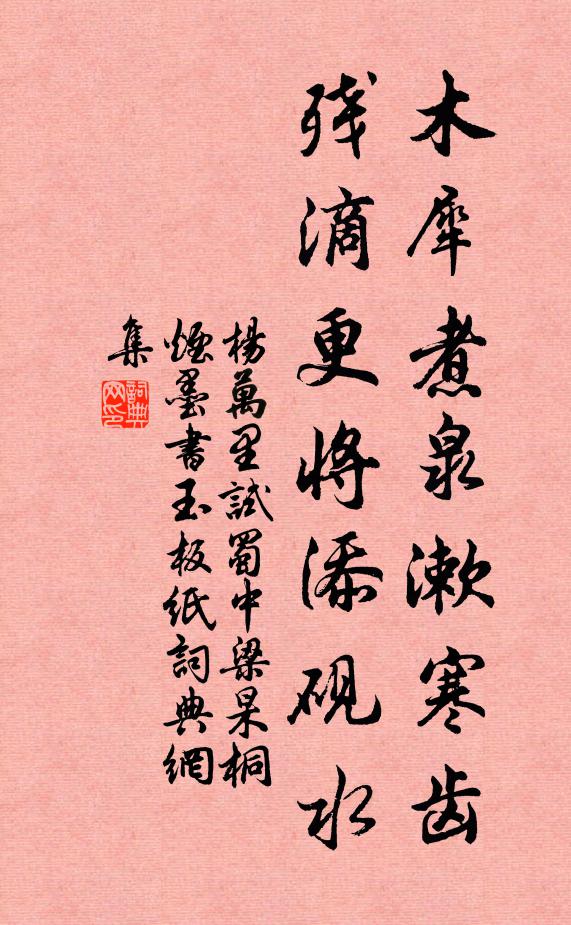 木犀煮泉漱寒齿
残滴更将添砚水
楊萬里試蜀中梁杲桐
煙墨書玉板紙詞典網
集
詞典
网印